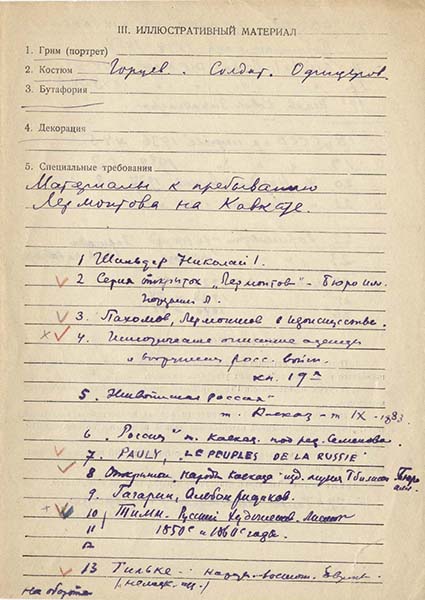 III. ИЛЛЮСТРАТИВНЫЙ МАТЕРИАЛ
1. Грим (портрет)
2. Костюм Горцев. Солдат. Офицеров
3. Бутафория
4. Декорация
5. Специальные требования
Материалы к пребыванию
Лермонтова на Кавказе.
1 Шильдер Николай I.
2 Серия открыток „Лермонтов"-
3. Пахомов, Лермонтов в изоискусстве.
4. Историческое описание одежды
и вооружения росс. войск.
кн. 19
5. Живописная Россия"
т. Кавказ - т. IX - 1883.
6. „Россия" т. Кавказ. под ред. Семенова.
7. PAULY, „LE PEUPLES DE LA RUSSIE"
8 Открытки народы Кавказа изд. музея Тбилиси
9. Гагарин, Альбом рисунков.
10 Тимм. Русский Художеств. Листок
11 1850е и 1860е годы.
13 Тильке -
на обороте